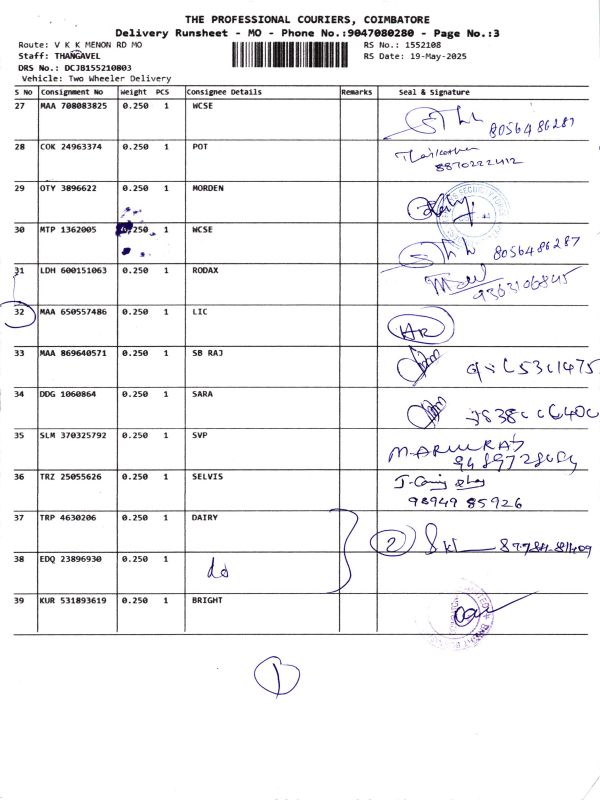 THE PROFESSIONAL COURIERS, COIMBATORE
Delivery Runsheet - MO - Phone No.:9047080280 - Page No.:3
Route: V K K MENON RD MO
RS No.: 1552108
Staff: THANGAVEL
RS Date: 19-May-2025
DRS No.: DCJB155210803
Vehicle: Two Wheeler Delivery
S No Consignment No Weight PCS Consignee Details Remarks Seal & Signature
27 MAA 708083825 0.250 1 WCSE 8056486287
28 COK 24963374 0.250 1 POT 8870222412
29 OTY 3896622 0.250 1 MORDEN
30 MTP 1362005 0.250 1 WCSE 8056486287
31 LDH 600151063 0.250 1 RODAX
32 MAA 650557486 0.250 1 LIC
33 MAA 869640571 0.250 1 SB RAJ
34 DDG 1060864 0.250 1 SARA
35 SLM 370325792 0.250 1 SVP
36 TRZ 25055626 0.250 1 SELVIS 98949 85926
37 TRP 4630206 0.250 1 DAIRY 2
38 EDQ 23896930 0.250 1 do
39 KUR 531893619 0.250 1 BRIGHT
1